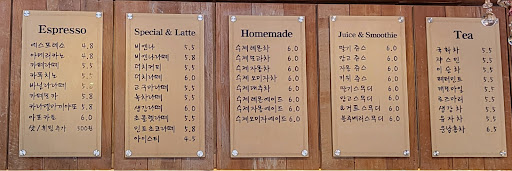 Espresso
에스프레소 4.8
아메리카노 4.8
카페라떼 5.5
카푸치노 5.5
바닐라라떼 5.8
카페모카 5.8
카라멜마끼아또 5.8
아포가토 6.0
샷/휘핑추가 500원
Special & Latte
비엔나 5.5
비엔나라떼 5.8
더치커피 5.5
더치라떼 6.0
고구마라떼 5.5
녹차라떼 5.5
생강라떼 5.5
초콜렛라떼 5.5
민트초코라떼 5.8
아이스티 4.5
Homemade
수제레몬차 6.0
수제모과차 6.0
수제자몽차 6.0
수제오미자차 6.0
수제대추차 6.0
수제레몬에이드 6.0
수제자몽에이드 6.0
수제오미자에이드 6.0
Juice & Smoothie
딸기 쥬스 6.0
망고 쥬스 6.0
키위 쥬스 6.0
딸기스무디 6.0
망고스무디 6.0
요거트 스무디 6.0
블루베리스무디 6.0
Tea
국화차 5.5
쟈스민 5.5
이슬차 5.5
페퍼민트 5.5
캐모마일 5.5
루이보스 5.5
생강차 5.5
유자차 5.5